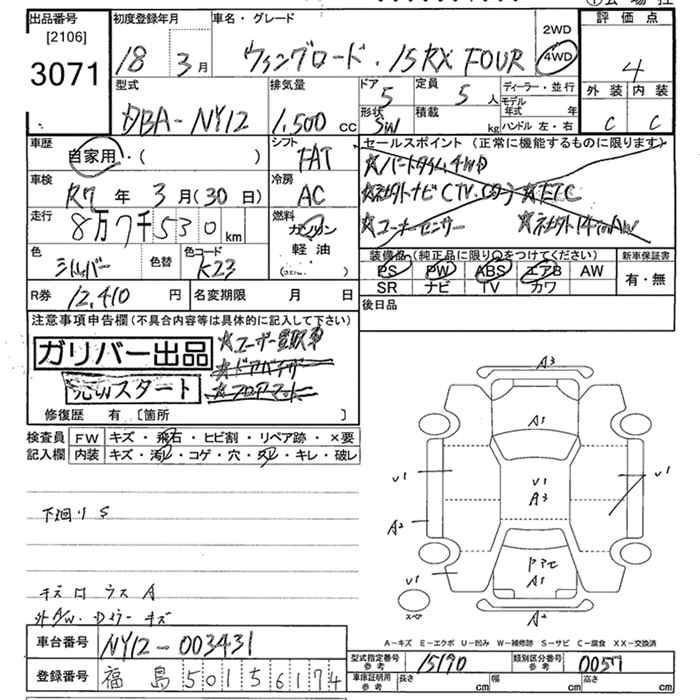 出品番号 初度登録年月 車名・グレード 評価点
[2106] 2WD
3071 18年 3月 ウィングロード・15RX FOUR 4WD 4
型式 排気量 ドア 定員 ディーラー・並行 外装 内装
5 5人 モデル年式 年
DBA-NY12 1,500cc 形状 SW 積載 kg ハンドル 左・右 C C
車歴 シフト セールスポイント(正常に機能するものに限ります)
自家用・( ) FAT ☆パートタイム4WD
車検 冷房 ☆ETC
R7年 3月(30日) AC
走行 燃料 ☆コーナーセンサー
8万7千530km ガソリン
色 色替 色コード 軽油 装備品(純正品に限り○をつけてください) 新車保証書
シルバー K23 PS PW ABS エアB AW 有・無
SR ナビ TV カワ
R券 12,410円 名変期限 月 日 後日品
注意事項申告欄(不具合内容等は具体的に記入して下さい)
ガリバー出品 ☆ユーザー買取車
売切スタート ☆ドアバイザー
☆フロアーマット
修復歴 有〔箇所 〕
検査員 FW キズ・飛石・ヒビ割・リペア跡・×要
記入欄 内装 キズ・汚レ・コゲ・穴・欠・キレ・破レ
A3
A1
V1 V1 V1
A3
A2
A1
V1
スペア
A2
下廻り S
キズ凹 ウス A
A-キズ E-エクボ U-凹み W-補修跡 S-サビ C-腐食 XX-交換済
車台番号 NY12-003431
型式指定番号 参考 15190 類別区分番号 参考 0057
登録番号 福島 501 5 6174
車庫証明用 参考 長さ cm 幅 cm 高さ cm